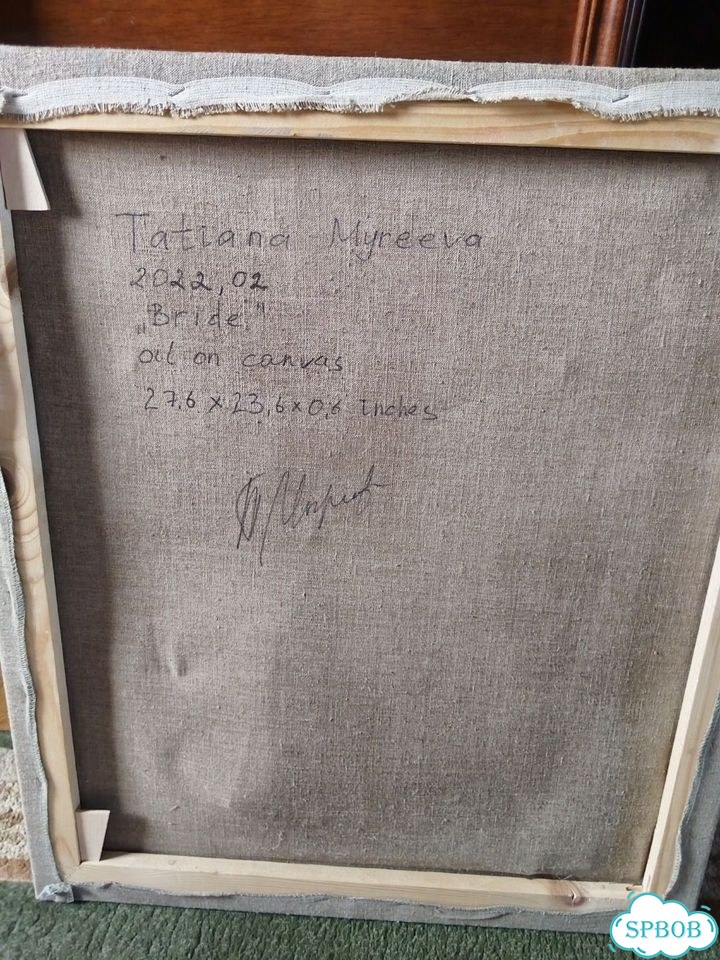 Tatiana Myreeva
2022, 02
„Bride"
oil on canvas
27,6 x 23,6 x 0,6 inches
SPBOB